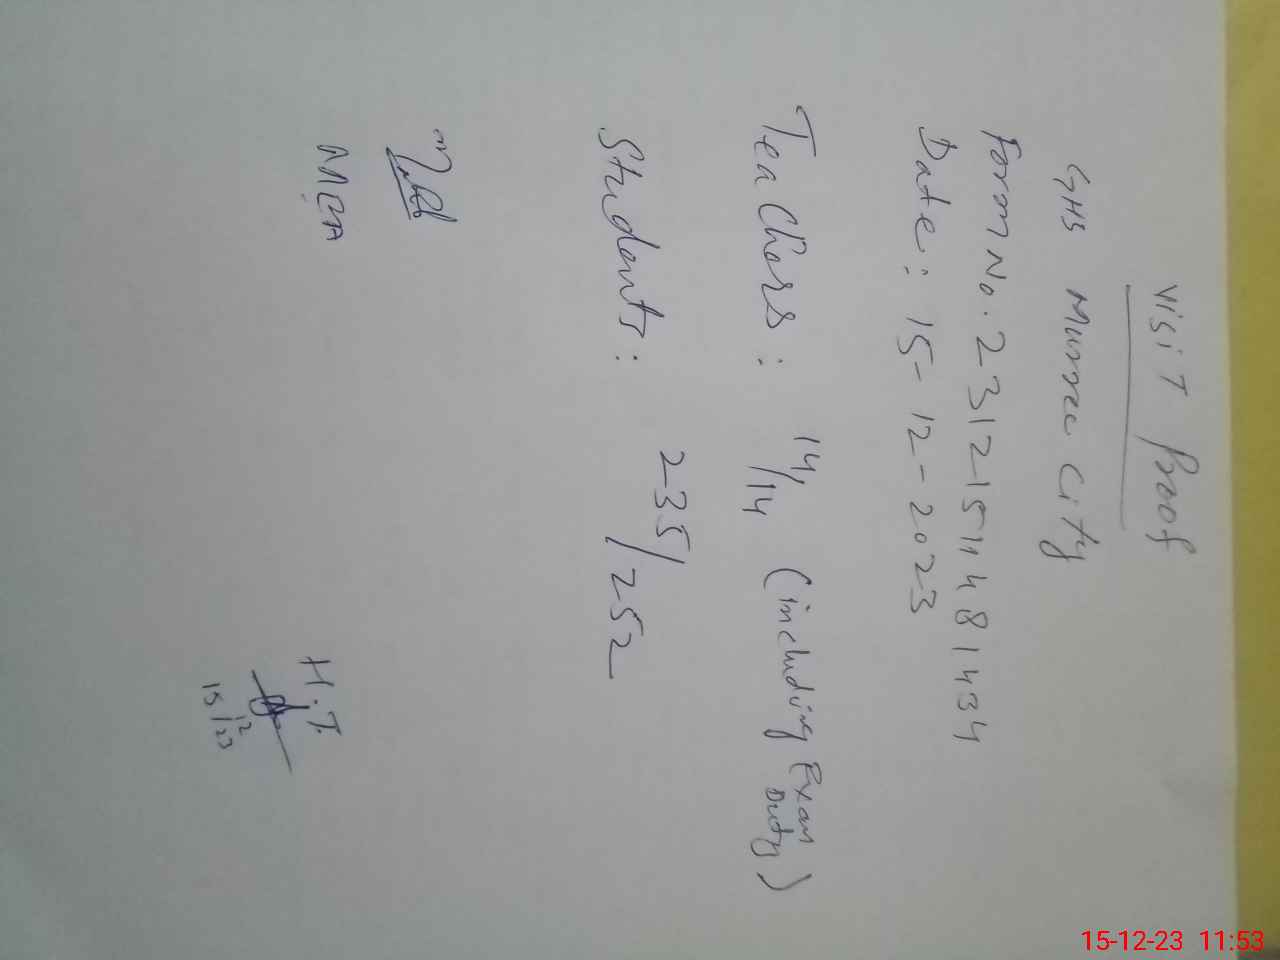 Visit Proof
GHS Murree City
Form No. 23121511481434
Date: 15-12-2023
Teachers: 14/14 (including Exam Duty)
Students: 235/252
MEA
H.T.
15/12/23
15-12-23 11:53